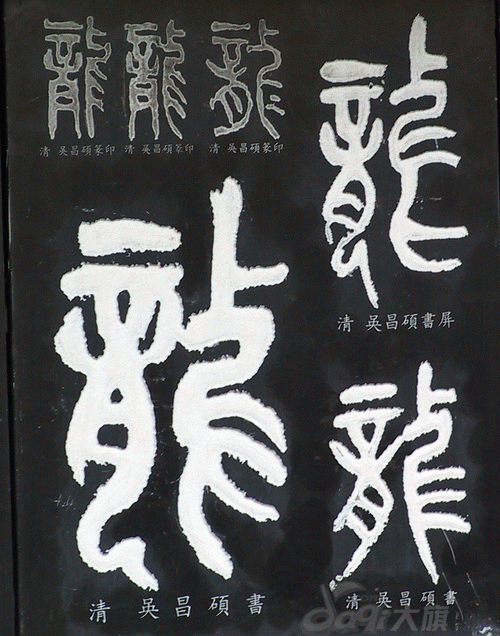 龍 龍 龍
清 吳昌碩篆印 清 吳昌碩篆印 清 吳昌碩篆印
龍
清 吳昌碩書屏
龍
清 吳昌碩書
龍
清 吳昌碩書
大旗